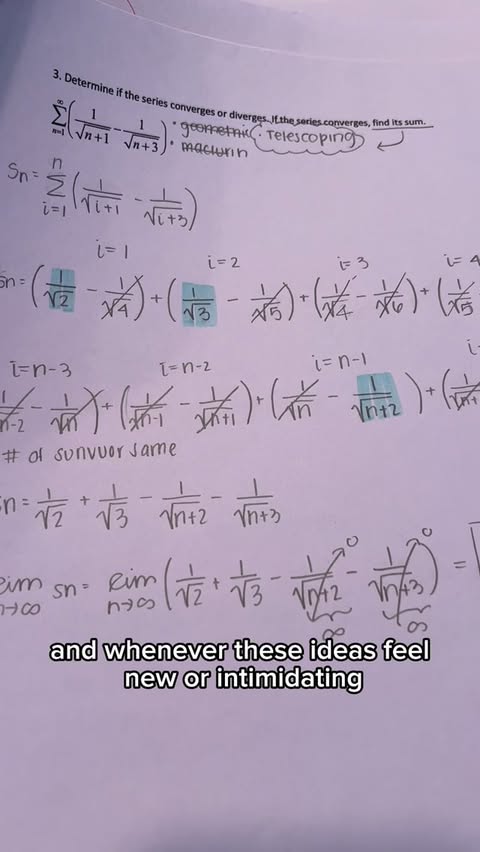 3. Determine if the series converges or diverges. If the series converges, find its sum.
∞
∑ (1/√n+1 − 1/√n+3) • geometric • Telescoping
n=1
• maclurin
n
Sn = ∑ (1/√i+1 − 1/√i+3)
i=1
i=1 i=2 i=3 i=4
Sn = (1/√2 − 1/√4) + (1/√3 − 1/√5) + (1/√4 − 1/√6) + (1/√5
i=n-3 i=n-2 i=n-1 i
n-2 − 1/√n) + (1/√n-1 − 1/√n+1) + (1/√n − 1/√n+2) + (1/√n+
# of survuor same
n = 1/√2 + 1/√3 − 1/√n+2 − 1/√n+3
0 0
eim sn = eim (1/√2 + 1/√3 − 1/√n+2 − 1/√n+3) =
n→∞ n→∞
∞ ∞
and whenever these ideas feel
new or intimidating